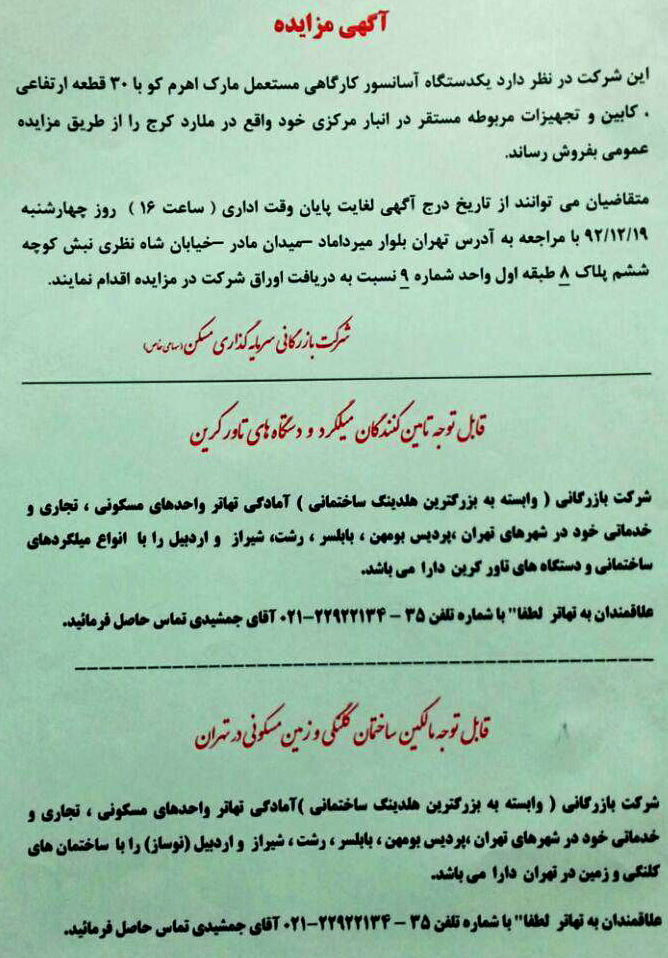 آگهی مزایده
این شرکت در نظر دارد یکدستگاه آسانسور کارگاهی مستعمل مارک اهرم کو با ۳۰ قطعه ارتفاعی
، کابین و تجهیزات مربوطه مستقر در انبار مرکزی خود واقع در ملارد کرج را از طریق مزایده
عمومی بفروش رساند.
متقاضیان می توانند از تاریخ درج آگهی لغایت پایان وقت اداری ( ساعت ۱۶ ) روز چهارشنبه
۹۲/۱۲/۱۹ با مراجعه به آدرس تهران بلوار میرداماد –میدان مادر –خیابان شاه نظری نبش کوچه
ششم پلاک ۸ طبقه اول واحد شماره ۹ نسبت به دریافت اوراق شرکت در مزایده اقدام نمایند.
شرکت بازرگانی سرمایه گذاری مسکن (سهامی خاص)
قابل توجه تامین کنندگان میلگرد و دستگاه های تاور کرین
شرکت بازرگانی ( وابسته به بزرگترین هلدینگ ساختمانی ) آمادگی تهاتر واحدهای مسکونی ، تجاری و
خدماتی خود در شهرهای تهران ،پردیس بومهن ، بابلسر ، رشت، شیراز و اردبیل را با انواع میلگردهای
ساختمانی و دستگاه های تاور کرین دارا می باشد.
علاقمندان به تهاتر لطفا" با شماره تلفن ۳۵ – ۲۲۹۲۲۱۳۴–۰۲۱ آقای جمشیدی تماس حاصل فرمائید.
قابل توجه مالکین ساختمان کلنگی و زمین مسکونی در تهران
شرکت بازرگانی ( وابسته به بزرگترین هلدینگ ساختمانی )آمادگی تهاتر واحدهای مسکونی ، تجاری و
خدماتی خود در شهرهای تهران ،پردیس بومهن ، بابلسر ، رشت ، شیراز و اردبیل (نوساز) را با ساختمان های
کلنگی و زمین در تهران دارا می باشد.
علاقمندان به تهاتر لطفا" با شماره تلفن ۳۵ – ۲۲۹۲۲۱۳۴–۰۲۱ آقای جمشیدی تماس حاصل فرمائید.